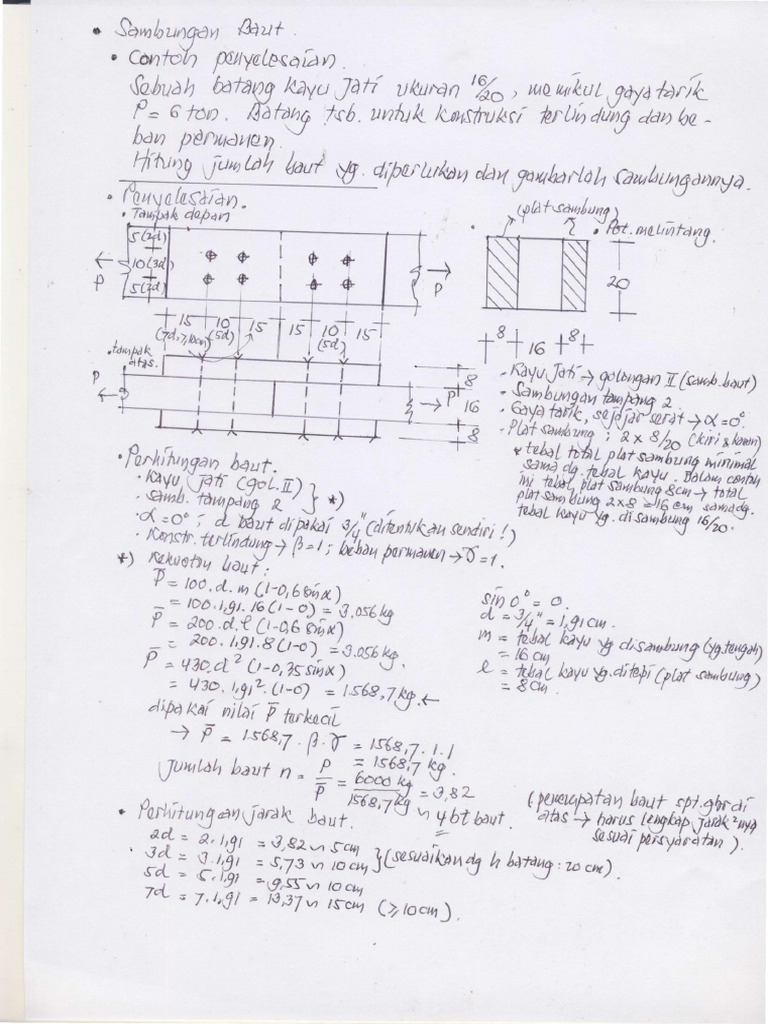 • Sambungan Baut.
• Contoh penyelesaian.
Sebuah batang kayu Jati ukuran 16/20, memikul gaya tarik
P = 6 ton. Batang tsb. untuk konstruksi terlindung dan be-
ban permanen.
Hitung jumlah baut yg. diperlukan dan gambarlah sambungannya.
• Penyelesaian.
• Tampak depan
(plat sambung)
• Pot. melintang.
5(2d)
10(3d)
5(2d)
P
P
20
15 10 15 15 10 15
(7d, ≥10cm) (5d) (5d)
8 16 8
• tampak
atas.
P
P
8
16
8
• Kayu Jati → golongan II (samb. baut)
• Sambungan tampang 2
• Gaya tarik, sejajar serat → α = 0°
• Plat sambung ; 2 x 8/20 (kiri & kanan)
* tebal total plat sambung minimal
sama dg. tebal kayu. Dalam contoh
ini tebal plat sambung 8cm → total
plat sambung 2x8 = 16 cm sama dg.
tebal kayu yg. disambung 16/20.
• Perhitungan baut.
• Kayu Jati (gol. II)
• samb. tampang 2 } *)
• α = 0° ; d baut dipakai 3/4" (ditentukan sendiri!)
• Konstr. terlindung → β = 1 ; beban permanen → γ = 1.
*) Kekuatan baut :
P̅ = 100. d. m (1-0,6 sin α)
= 100. 1,91. 16 (1-0) = 3.056 kg
P̅ = 200. d. l (1-0,6 sin α)
= 200. 1,91. 8 (1-0) = 3.056 kg.
P̅ = 430. d² (1-0,35 sin α)
= 430. 1,91². (1-0) = 1.568,7 kg. ←
dipakai nilai P̅ terkecil
→ P̅ = 1.568,7 . β . γ = 1568,7 . 1 . 1
= 1568,7 kg.
sin 0° = 0.
d = 3/4" = 1,91 cm.
m = tebal kayu yg disambung (yg. tengah)
= 16 cm
l = tebal kayu yg. ditepi (plat sambung)
= 8 cm.
Jumlah baut n = P/P̅ = 6000 kg/1568,7 kg = 3,82
∽ 4 bt baut.
(penempatan baut spt. gbr di
atas → harus lengkap jarak²nya
sesuai persyaratan).
• Perhitungan jarak baut.
2d = 2. 1,91 = 3,82 ∽ 5 cm
3d = 3. 1,91 = 5,73 ∽ 10 cm } (sesuaikan dg h batang : 20 cm).
5d = 5. 1,91 = 9,55 ∽ 10 cm
7d = 7. 1,91 = 13,37 ∽ 15 cm (≥ 10 cm).